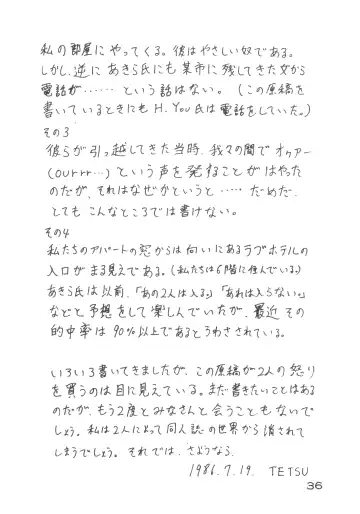 私の部屋にやってくる。彼はやさしい奴である。
しかし、逆にあきら氏にも某市に残してきた女から
電話が……という話はない。（この原稿を
書いているときにもH.You氏は電話をしていた。）
その3
彼らが引っ越してきた当時、我々の間でオゥアー
（ourrr…）という声を発することがはやった
のだが、それはなぜかというと……だめだ、
とてもこんなところでは書けない。
その4
私たちのアパートの窓からは向いにあるラブホテルの
入口がまる見えである。（私たちは6階に住んでいる）
あきら氏は以前、「あの2人は入る。」「あれは入らない。」
などと予想をして楽しんでいたが、最近その
的中率は90％以上であるとうわさされている。
いろいろ書いてきましたが、この原稿が2人の怒り
を買うのは目に見えている。まだ書きたいことはある
のだが、もう2度とみなさんと会うこともないで
しょう。私は2人によって同人誌の世界から消されて
しまうでしょう。それでは、さようなら。
1986.7.19. TETSU
36